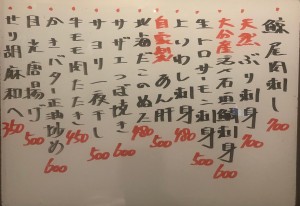 鯨尾肉刺し 700
天然ぶり刺身 700
大分産活〆石垣鯛刺身 600
生トロサーモン刺身 500
上いわし刺身 480
自家製あん肝 500
北海だこのぬた 480
サザエつぼ焼き 600
サヨリ一夜干し 500
牛モモ肉たたき 450
かきバター正油炒め 600
目光唐揚げ 500
せり胡麻和へ 350